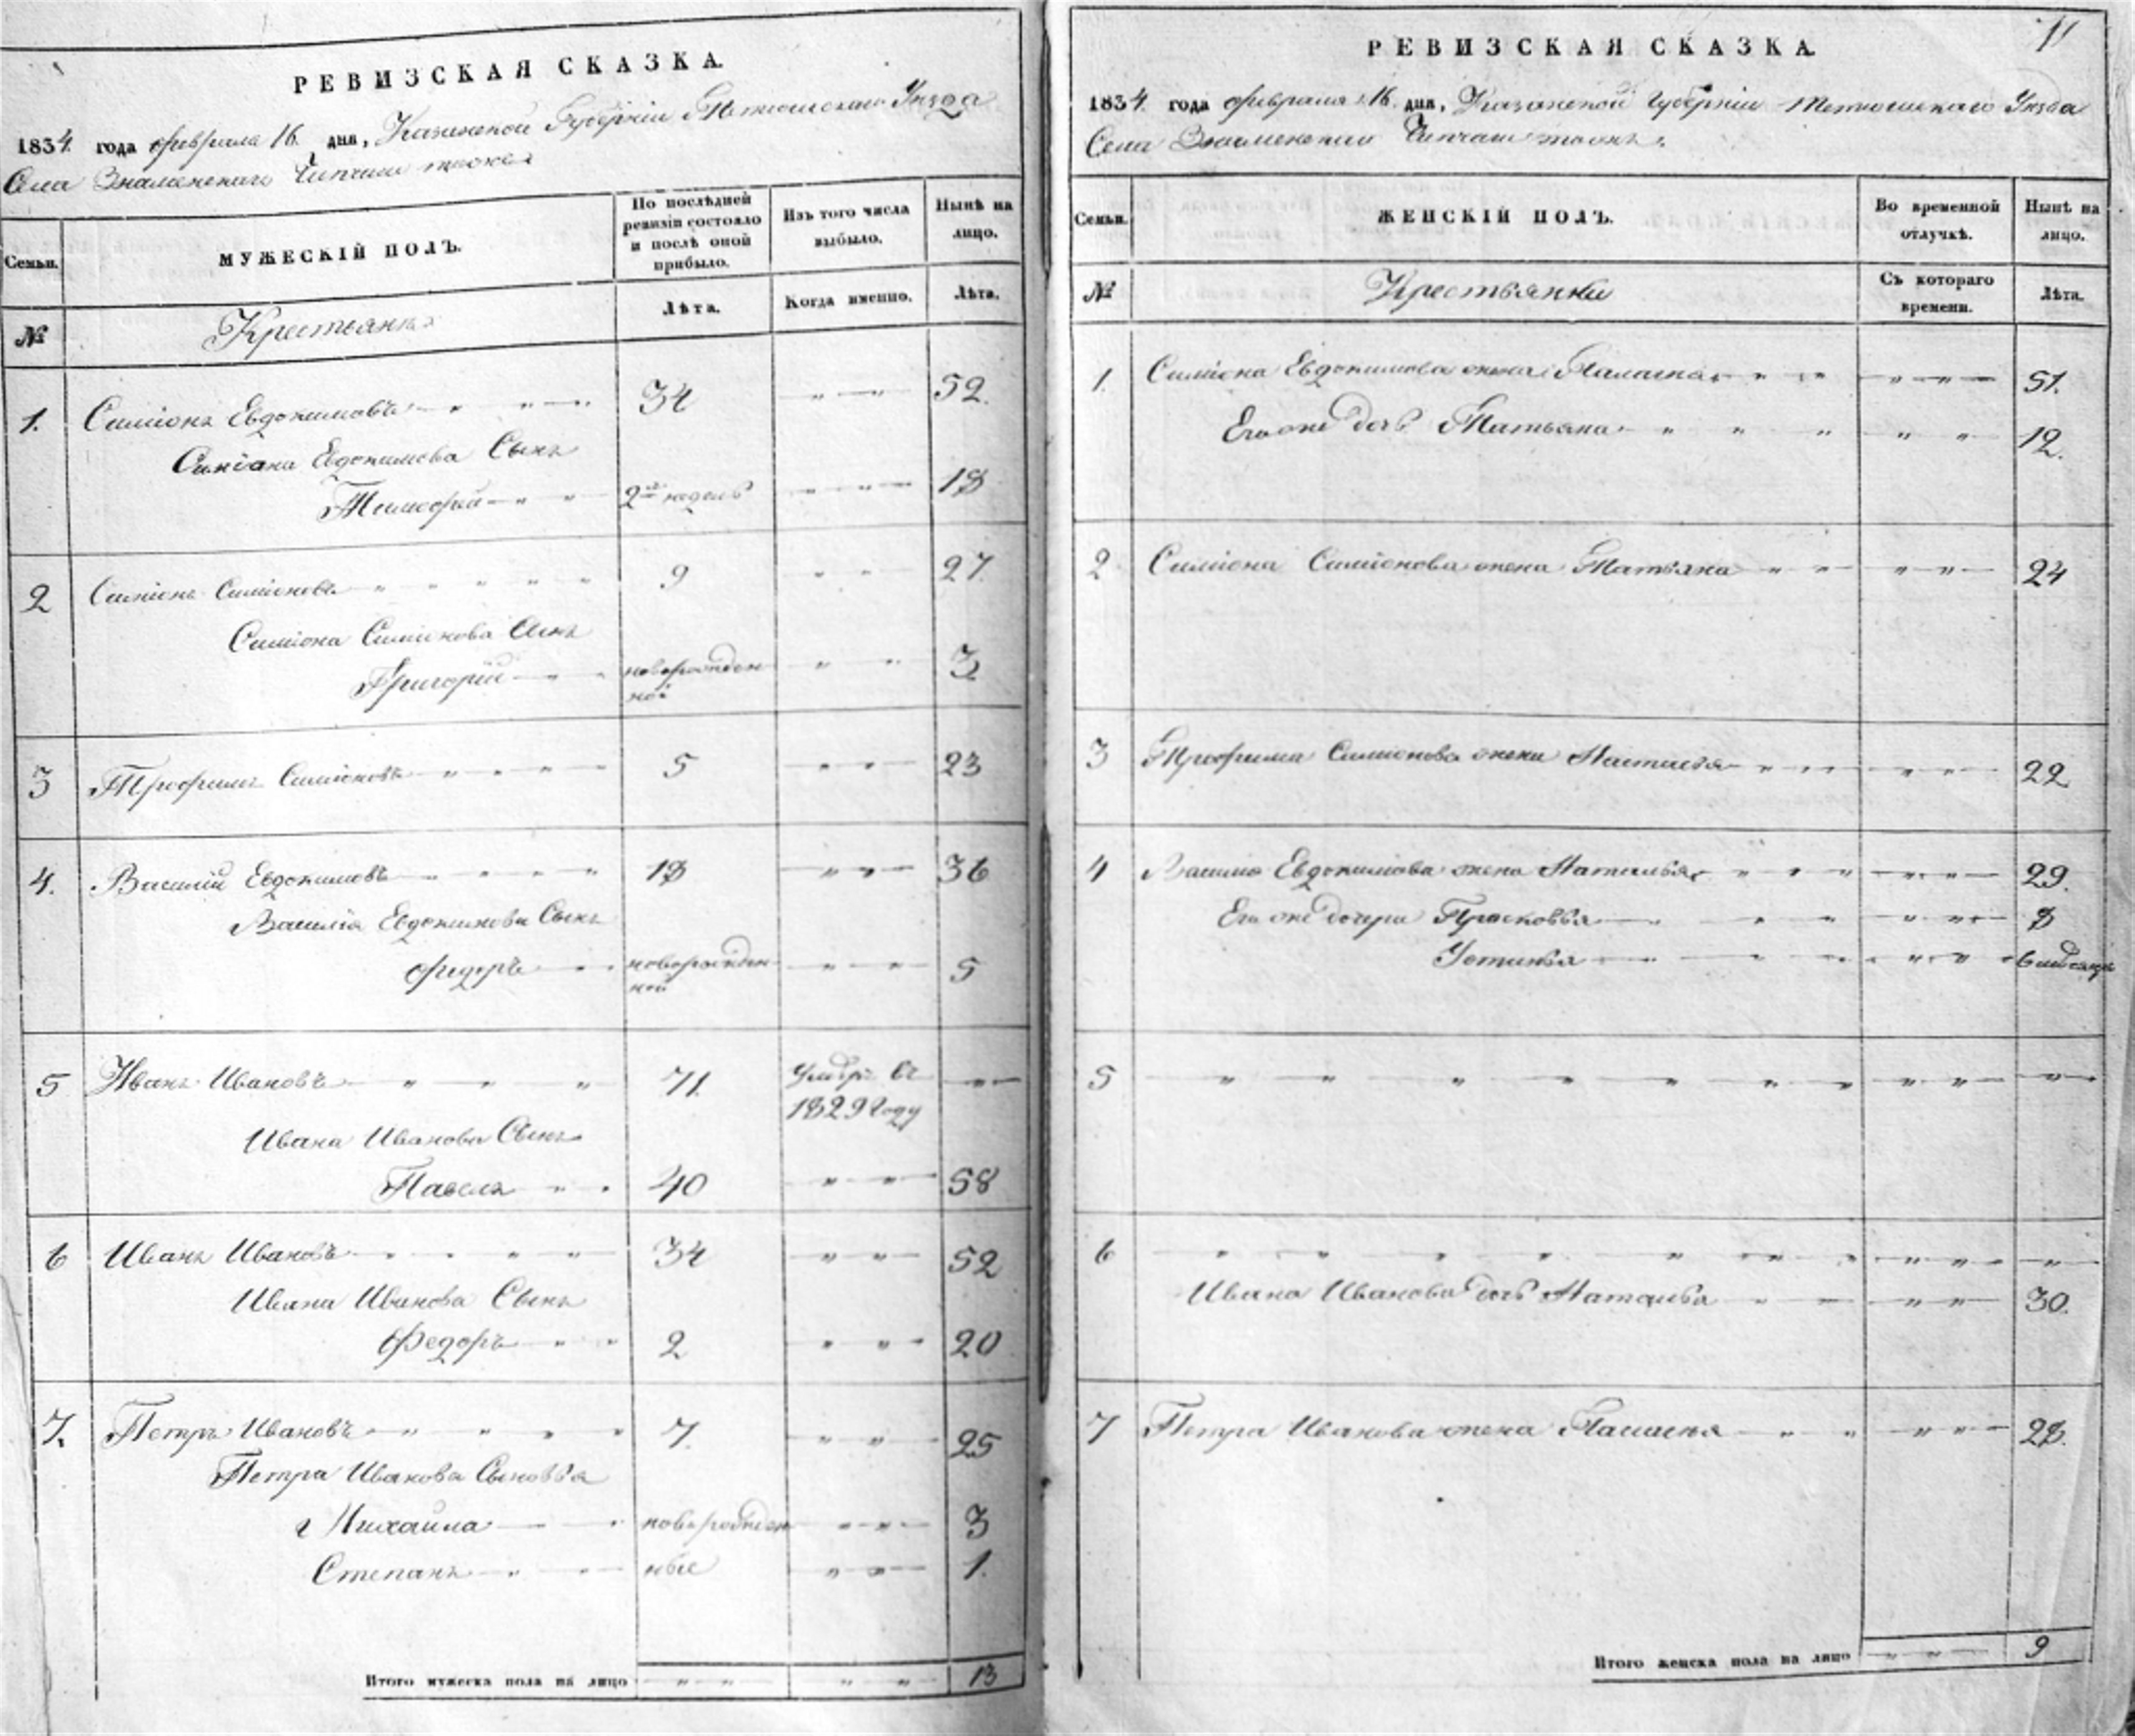 РЕВИЗСКАЯ СКАЗКА.
1834 года февраля 16 дня, Казанской Губерніи Тетюшскаго Уезда
Села Знаменскаго тожъ
Семьи.
МУЖЕСКІЙ ПОЛЪ.
По послѣдней ревизіи состояло и послѣ оной прибыло.
Изъ того числа выбыло.
Нынѣ на лицо.
№
Крестьянъ
Лѣта.
Когда именно.
Лѣта.
1. Симіонъ Евдокимовъ 34 52.
Симіона Евдокимова Сынъ
Тимофей 2 недель 18
2 Симіонъ Симіоновъ 9 27
Симіона Симіонова Сынъ
Григорій новорожден 3
ной
3 Трофимъ Симіоновъ 5 23
4. Василій Евдокимовъ 18 36
Василія Евдокимова Сынъ
Федоръ новорожден 5
ной
5 Иванъ Ивановъ 71. Умеръ въ
1829 году
Ивана Иванова Сынъ
Павелъ 40 58
6 Иванъ Ивановъ 34 52
Ивана Иванова Сынъ
Федоръ 2 20
7. Петръ Ивановъ 7. 25
Петра Иванова Сыновья
Михаила новорожден 3
Степанъ ные 1.
Итого мужеска пола на лицо 13
11
РЕВИЗСКАЯ СКАЗКА.
1834. года февраля 16. дня, Казанской Губерніи Тетюшскаго Уезда
Села Знаменскаго тожъ.
Семьи.
ЖЕНСКІЙ ПОЛЪ.
Во временной отлучкѣ.
Нынѣ на лицо.
№
Крестьянки
Съ котораго времени.
Лѣта.
1. Симіона Евдокимова жена 51.
Его же дочь Татьяна 12.
2 Симіона Симіонова жена Татьяна 24
3 Трофима Симіонова жена Настасья 22
4 Василія Евдокимова жена Наталья 29.
Его же дочери Прасковья 8
Устинья 6
5
6
Ивана Иванова дочь Наталья 30.
7 Петра Иванова жена 28.
Итого женска пола на лицо 9